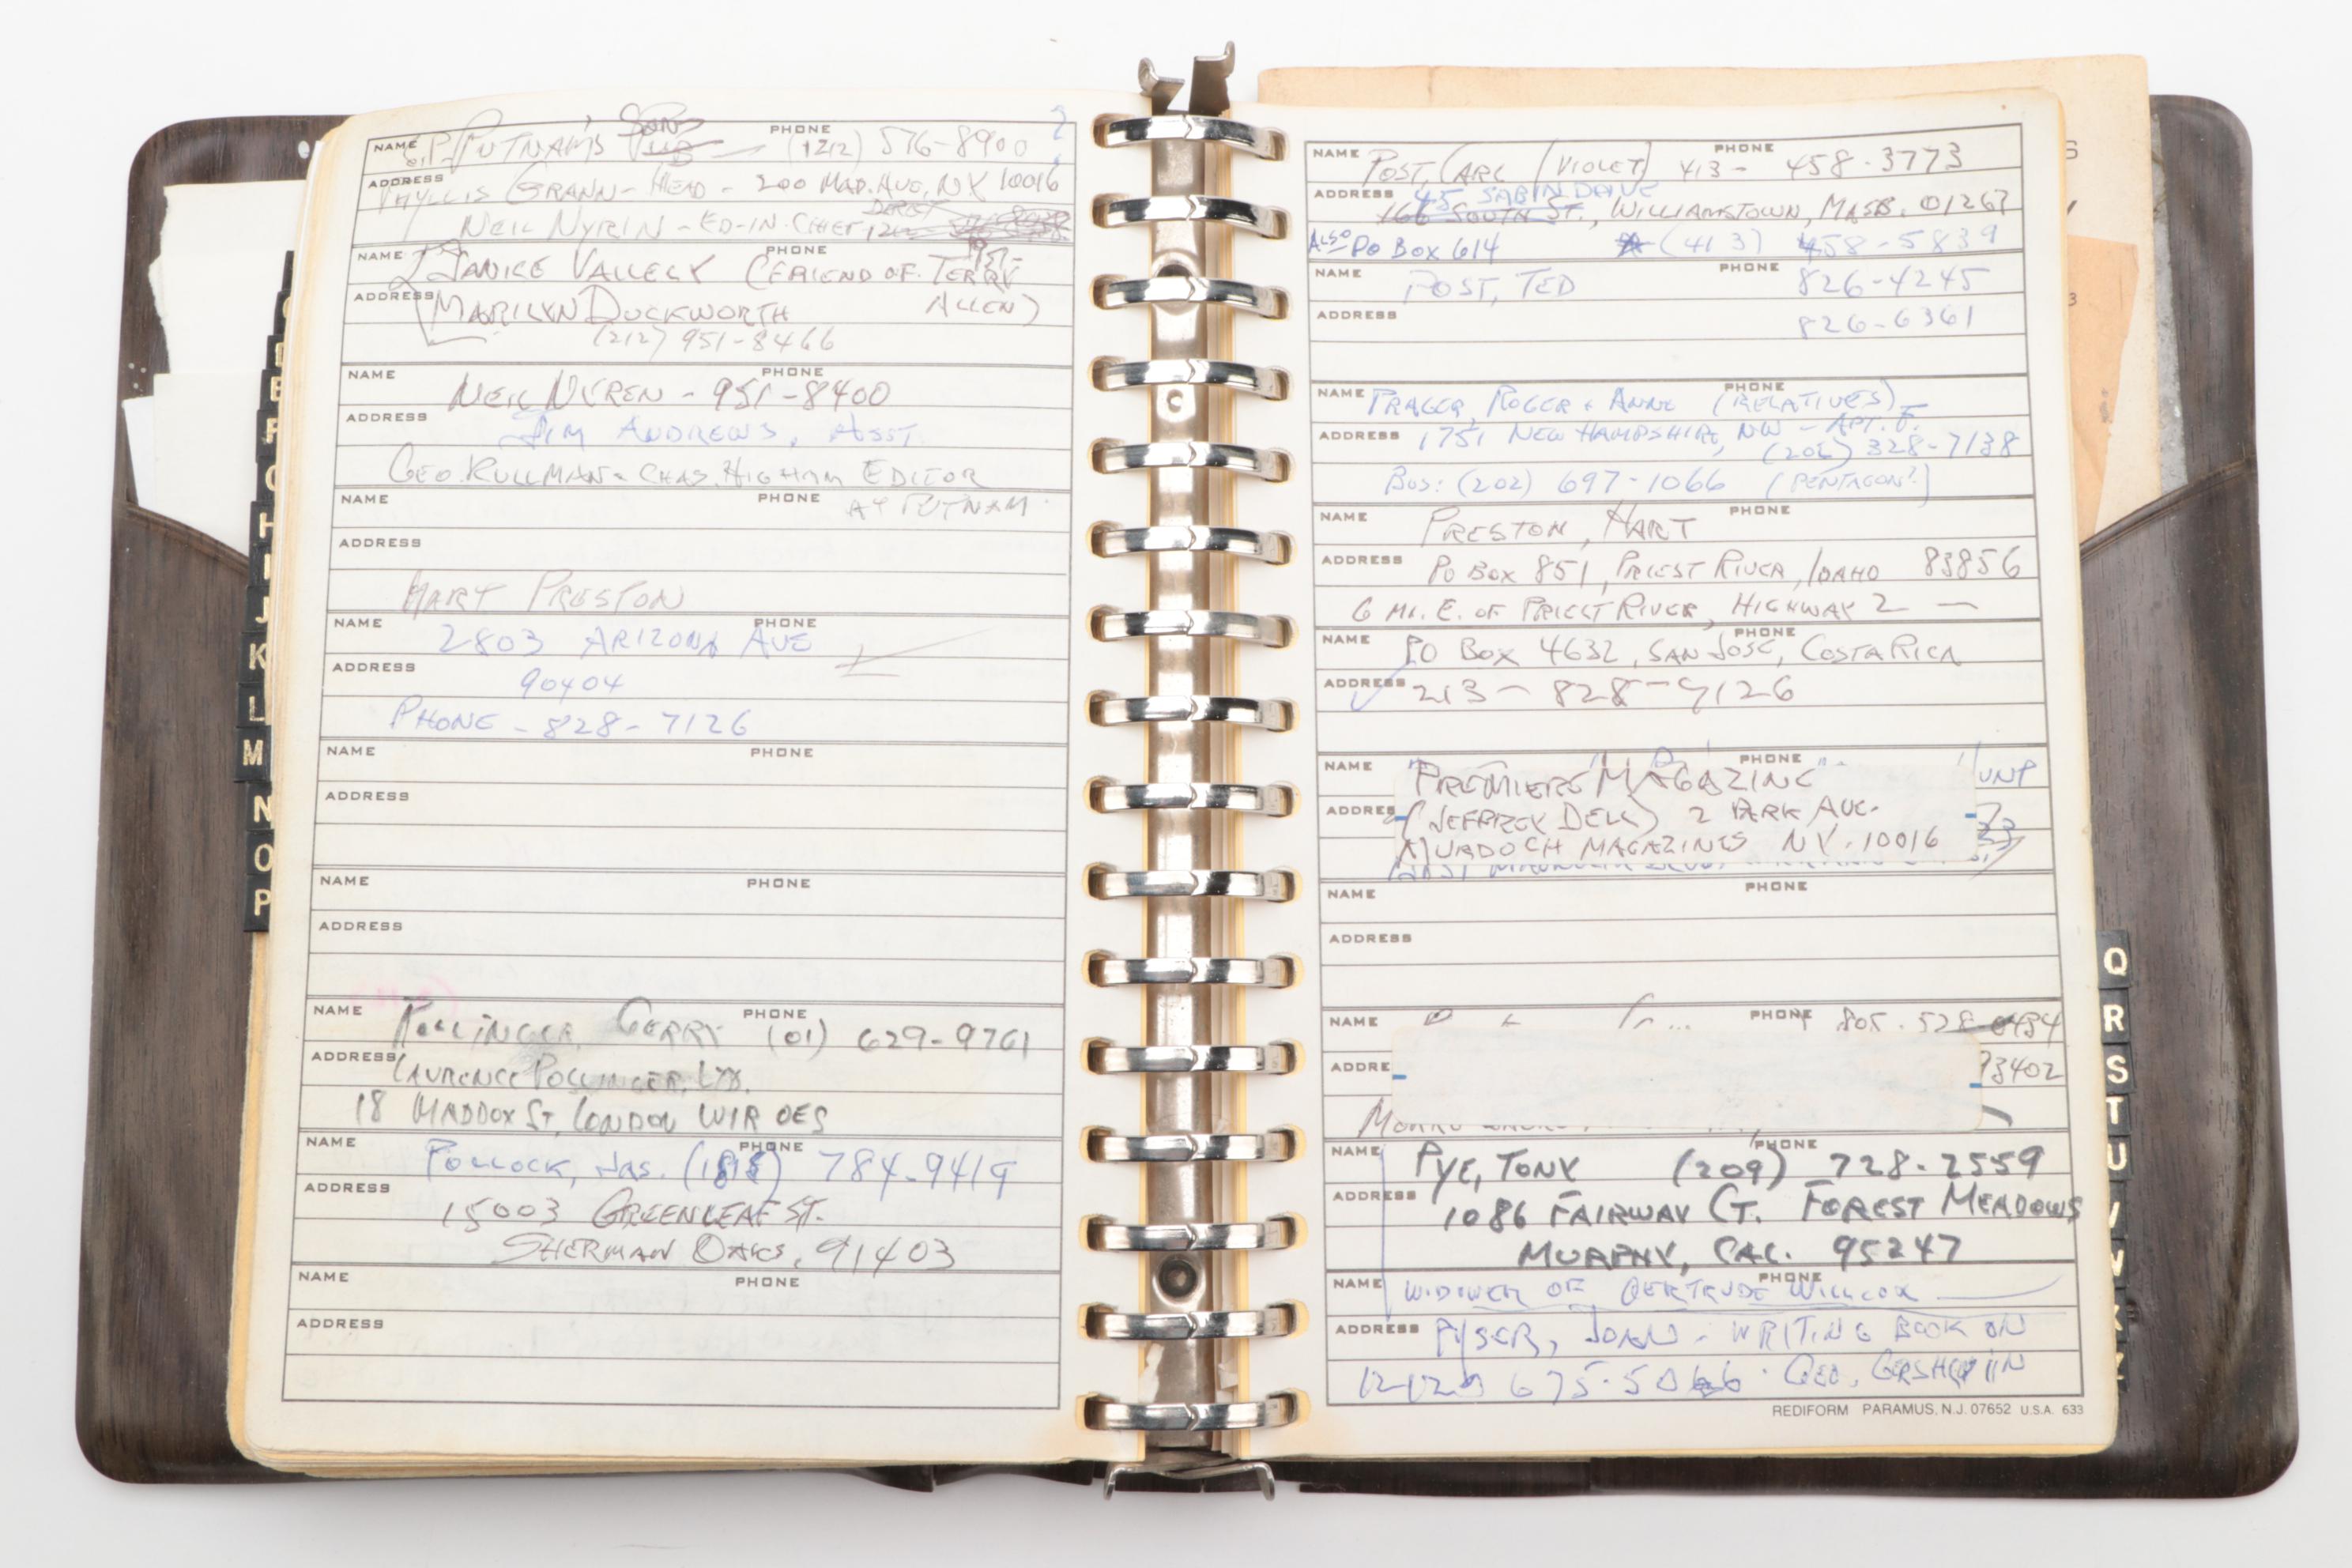 NAME G.P. PUTNAM'S PUB SONS PHONE (212) 576-8900
ADDRESS PHYLLIS GRANN - HEAD - 200 MAD. AVE, NY 10016
NEIL NYRIN - ED-IN-CHIEF DIRECT
NAME JANICE VALLELY PHONE (FRIEND OF TERRY
ADDRESS MARILYN DUCKWORTH ALLEN)
(212) 951-8466
NAME PHONE
NEIL NYREN - 951-8400
ADDRESS
JIM ANDREWS, ASST
GEO. KULLMAN - CHAS. HIGHAM EDITOR
NAME PHONE AT PUTNAM
ADDRESS
HART PRESTON
NAME PHONE
2803 ARIZONA AVE
ADDRESS
90404
PHONE - 828-7126
NAME PHONE
ADDRESS
NAME PHONE
ADDRESS
NAME POLLINGER, GERRY PHONE (01) 629-9761
ADDRESS LAURENCE POLLINGER, LTD.
18 MADDOX ST, LONDON W1R OES
NAME POLLOCK, JAS. PHONE (818) 784-9419
ADDRESS 15003 GREENLEAF ST.
SHERMAN OAKS, 91403
NAME PHONE
ADDRESS
NAME POST, CARL (VIOLET) PHONE 413 - 458-3773
ADDRESS 45 SABIN DRIVE
166 SOUTH ST., WILLIAMSTOWN, MASS. 01267
ALSO PO BOX 614 (413) 458-5839
NAME POST, TED PHONE 826-4245
ADDRESS 826-6361
NAME PRAGER, ROGER + ANNE PHONE (RELATIVES)
ADDRESS 1751 NEW HAMPSHIRE, NW - APT. F.
(202) 328-7138
BUS: (202) 697-1066 (PENTAGON?)
NAME PRESTON, HART PHONE
ADDRESS PO BOX 851, PRIEST RIVER, IDAHO 83856
6 MI. E. OF PRIEST RIVER, HIGHWAY 2 —
NAME PHONE
PO BOX 4632, SAN JOSE, COSTA RICA
ADDRESS 213 - 828-7126
NAME PHONE
"PREMIERE" MAGAZINE
ADDRES (JEFFREY DELL) 2 PARK AVE.
MURDOCH MAGAZINES NY. 10016
NAME PHONE
ADDRESS
NAME PHONE 805-528-0484
ADDRE 93402
NAME PYE, TONY PHONE (209) 728-2559
ADDRESS 1086 FAIRWAY CT. FOREST MEADOWS
MURPHY, CAL. 95247
NAME WIDOWER OF GERTRUDE WILLCOX PHONE
ADDRESS PYSER, JOAN - WRITING BOOK ON
675-5066 - GEO. GERSHWIN
REDIFORM PARAMUS, N.J. 07652 U.S.A. 633
H
I
J
K
L
M
N
O
P
Q
R
S
T
U